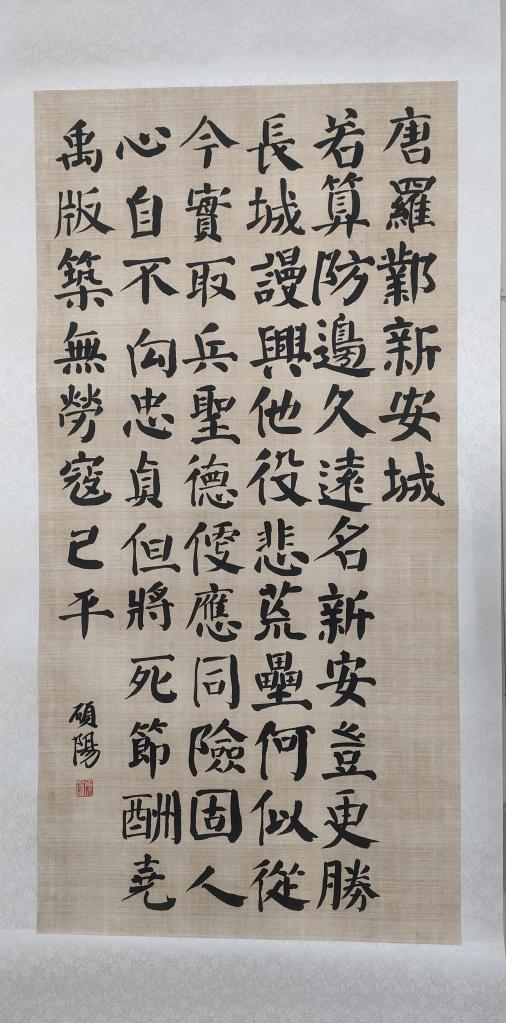 唐羅鄴新安城
若算防邊久遠名新安豈更勝
長城謾興他役悲荒壘何似從
今實取兵聖德便應同險固人
心自不向忠貞但將死節酬堯
禹版築無勞寇已平
碩陽